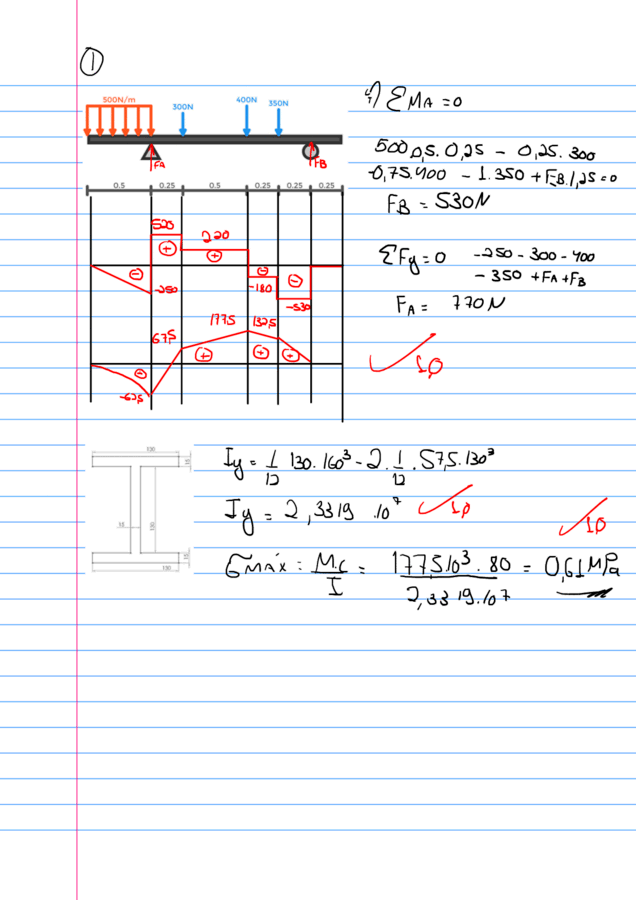 1
500N/m
300N
400N 350N
FA
FB
0.5 0.25 0.5 0.25 0.25 0.25
520
220
-250
-180
-530
1775 132,5
67,5
-62,5
ΣMA = 0
500.0,5.0,25 - 0,25.300
-0,75.400 - 1.350 + FB.1,25=0
FB = 530N
ΣFy=0 -250 - 300 - 400
- 350 + FA + FB
FA = 770N
1,0
130
15
15
130
15
130
Iy = 1/12 130.160³ - 2.1/12.57,5.130³
Iy = 2,3319 .10⁷
1,0
1,0
σmáx = M.c/I = 177,5.10³.80/2,3319.10⁷ = 0,61MPa